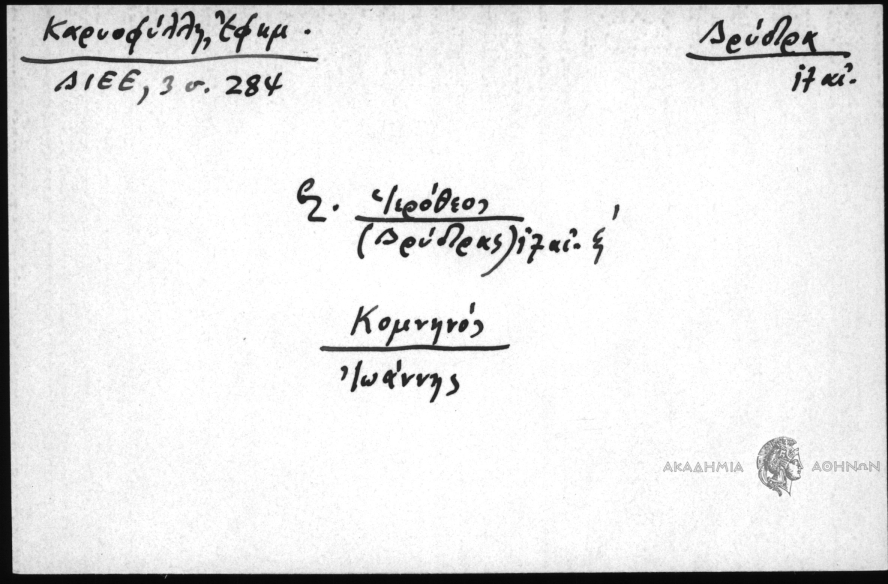 Καρυοφύλλη, Ἐφημ.
ΔΙΕΕ, 3 σ. 284
Δρύστρα
ιζ αἰ.
Ἱερόθεος
(Δρύστρας) ιζ αἰ.
Κομνηνός
Ἰωάννης
ΑΚΑΔΗΜΙΑ ΑΘΗΝΩΝ